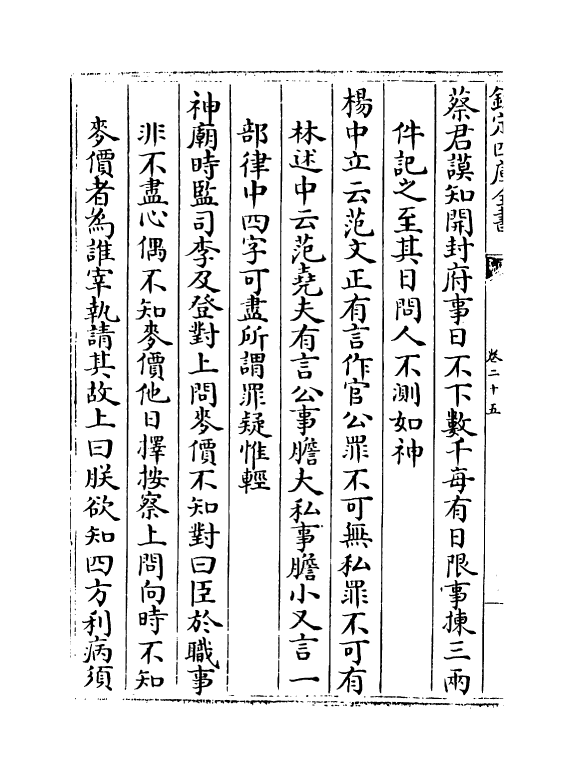 欽定四庫全書
卷二十五
蔡君謨知開封府事日不下數千每有日限事揀三兩
件記之至其日問人不測如神
楊中立云范文正有言作官公罪不可無私罪不可有
林述中云范堯夫有言公事膽大私事膽小又言一
部律中四字可盡所謂罪疑惟輕
神廟時監司李及登對上問麥價不知對曰臣於職事
非不盡心偶不知麥價他日擇按察上問向時不知
麥價者為誰宰執請其故上曰朕欲知四方利病須